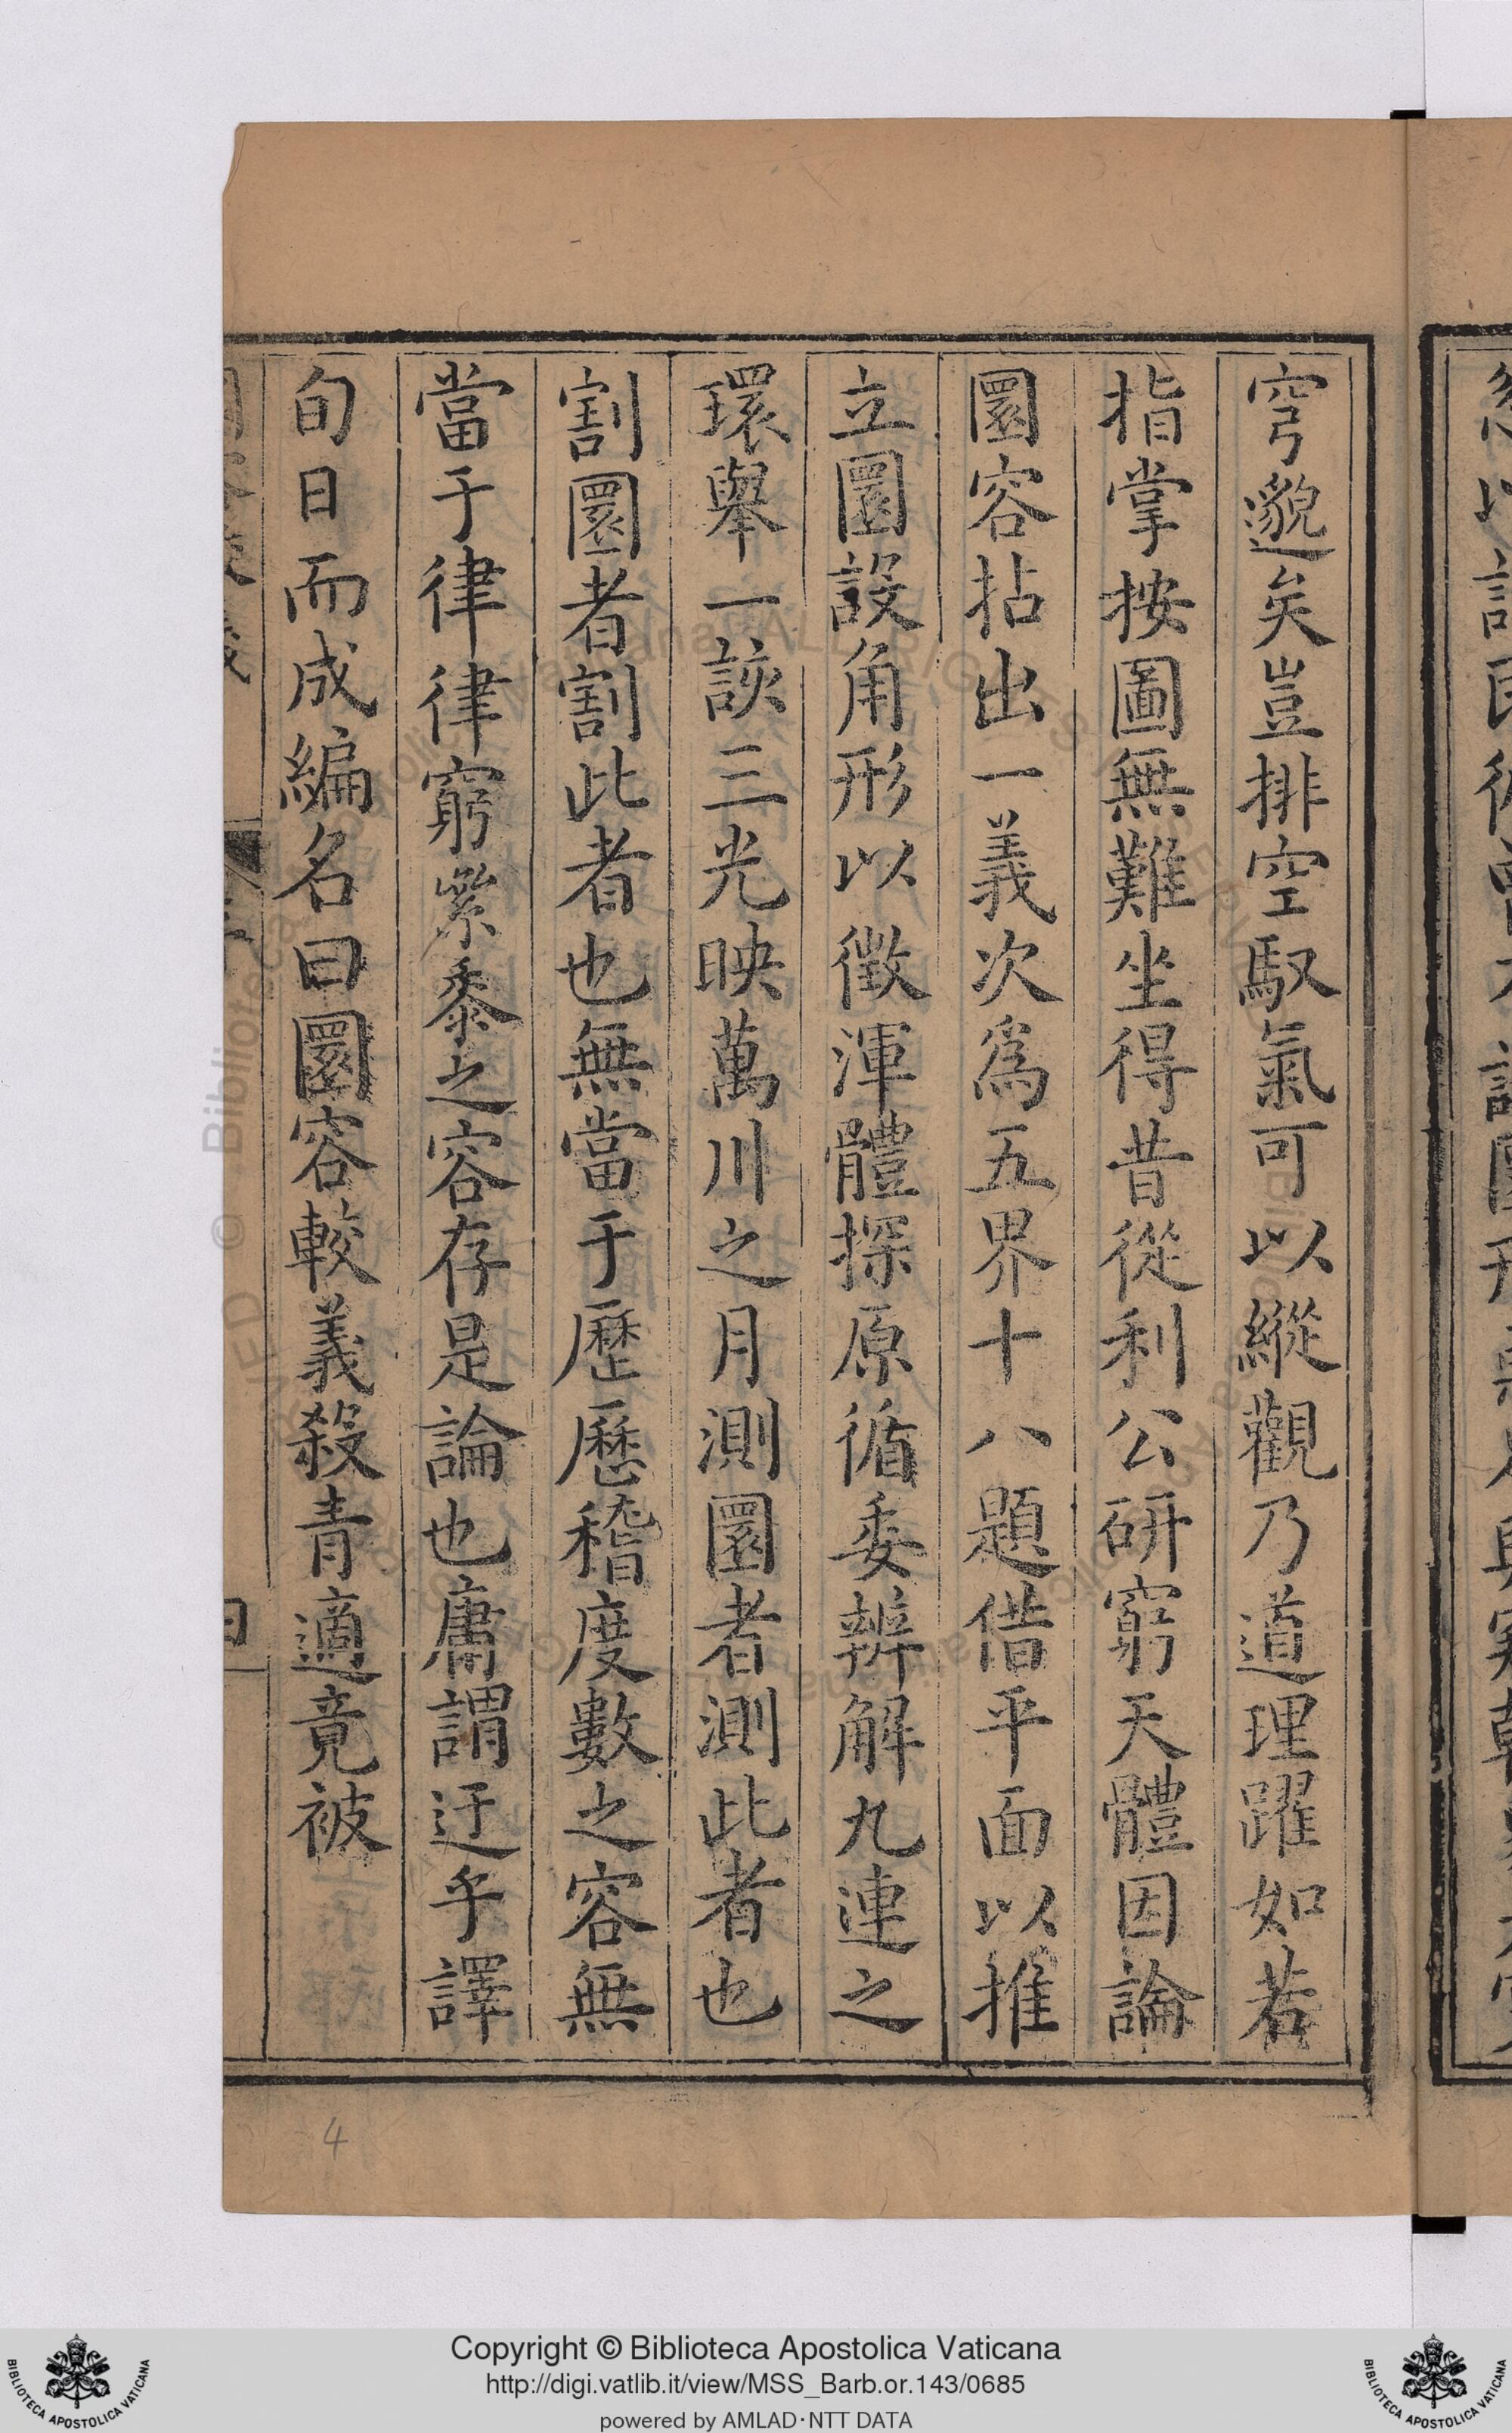 穹邈矣豈排空馭氣可以縱觀乃道理躍如若
指掌按圖無難坐得昔從利公研窮天體因論
圜容拈出一義次爲五界十八題借平面以推
立圜設角形以徵渾體探原循委辨解九連之
環舉一該三光映萬川之月測圜者測此者也
割圜者割此者也無當于歷歷稽度數之容無
當于律律窮絫黍之容存是論也庸謂迂乎譯
旬日而成編名曰圜容較義殺青適竟被
4
Copyright © Biblioteca Apostolica Vaticana
http://digi.vatlib.it/view/MSS_Barb.or.143/0685
powered by AMLAD·NTT DATA
BIBLIOTECA APOSTOLICA VATICANA
BIBLIOTECA APOSTOLICA VATICANA